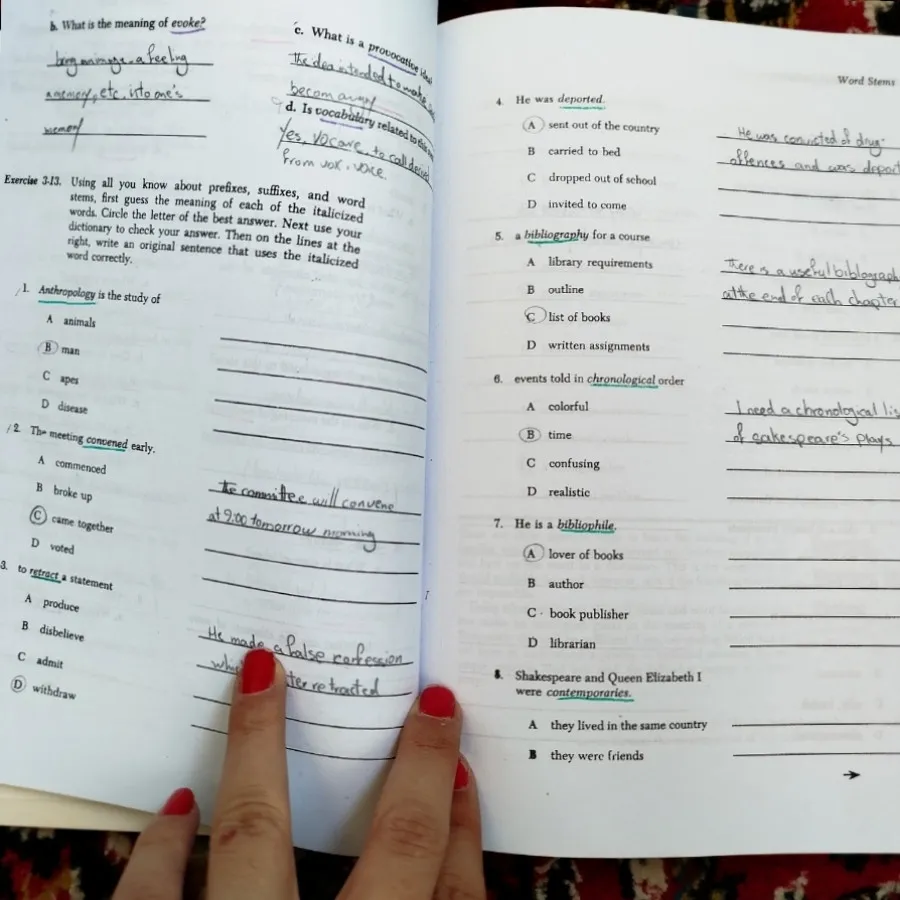 b. What is the meaning of evoke?
a feeling
a memory, etc. into one's
memory
c. What is a provocative
The idea intended to make
d. Is vocabulary related to
Yes, vocare, to call
from vox, voice.
Exercise 3-13. Using all you know about prefixes, suffixes, and word
stems, first guess the meaning of each of the italicized
words. Circle the letter of the best answer. Next use your
dictionary to check your answer. Then on the lines at the
right, write an original sentence that uses the italicized
word correctly.
1. Anthropology is the study of
A animals
B man
C apes
D disease
2. The meeting convened early.
A commenced
B broke up
C came together
D voted
The committee will convene
at 9:00 tomorrow morning
3. to retract a statement
A produce
B disbelieve
C admit
D withdraw
He made a false confession
retracted
Word Stems
4. He was deported.
A sent out of the country
B carried to bed
C dropped out of school
D invited to come
He was convicted of drug
offences and was
5. a bibliography for a course
A library requirements
B outline
C list of books
D written assignments
There is a useful
at the end of each chapter
6. events told in chronological order
A colorful
B time
C confusing
D realistic
I need a chronological
of sakespeare's plays
7. He is a bibliophile.
A lover of books
B author
C book publisher
D librarian
8. Shakespeare and Queen Elizabeth I
were contemporaries.
A they lived in the same country
B they were friends